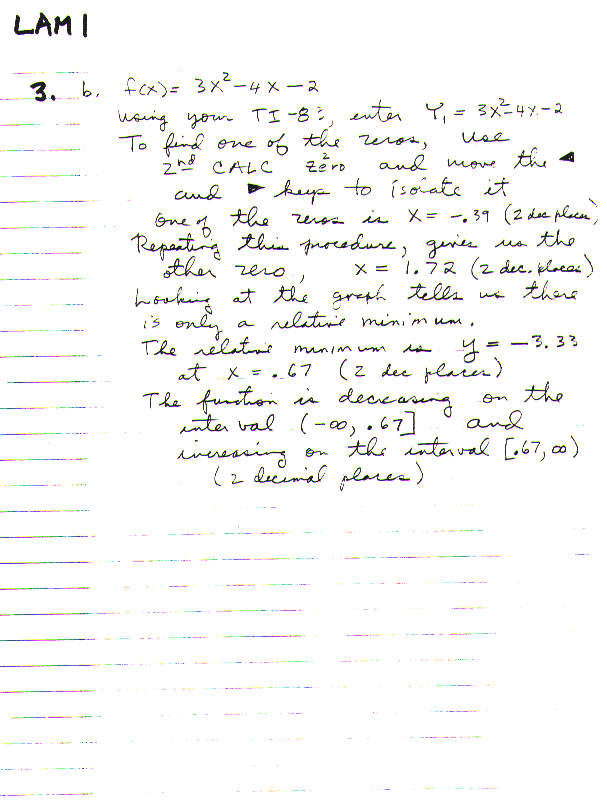 LAM 1
3. b. f(x) = 3x² - 4x - 2
Using your TI-83, enter Y₁ = 3x² - 4x - 2
To find one of the zeros, use
2nd CALC 2 zero and move the ◄
and ► keys to isolate it
One of the zeros is x = -.39 (2 dec places)
Repeating this procedure, gives us the
other zero, x = 1.72 (2 dec. places)
Looking at the graph tells us there
is only a relative minimum.
The relative minimum is y = -3.33
at x = .67 (2 dec places)
The function is decreasing on the
interval (-∞, .67] and
increasing on the interval [.67, ∞)
(2 decimal places)